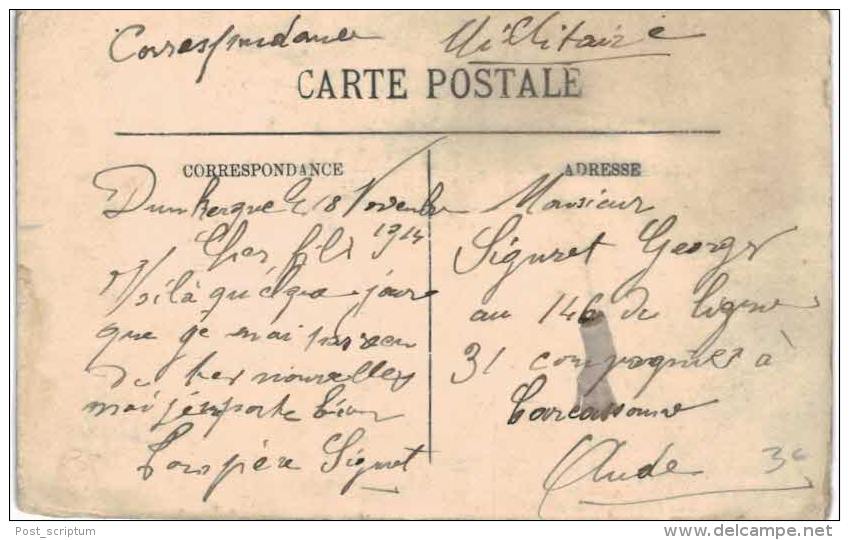 Correspondance Militaire
CARTE POSTALE
CORRESPONDANCE
Dunkerque le 18 Novembre
1914
Cher fils
Voilà quelque jours
que je n'ai pas reçu
de tes nouvelles
moi je me porte bien
Ton père Siguret
ADRESSE
Monsieur
Siguret Georges
au 146 de ligne
31 compagnies à
Carcassonne
Aude
3€
Post_scriptum
delcampe.net